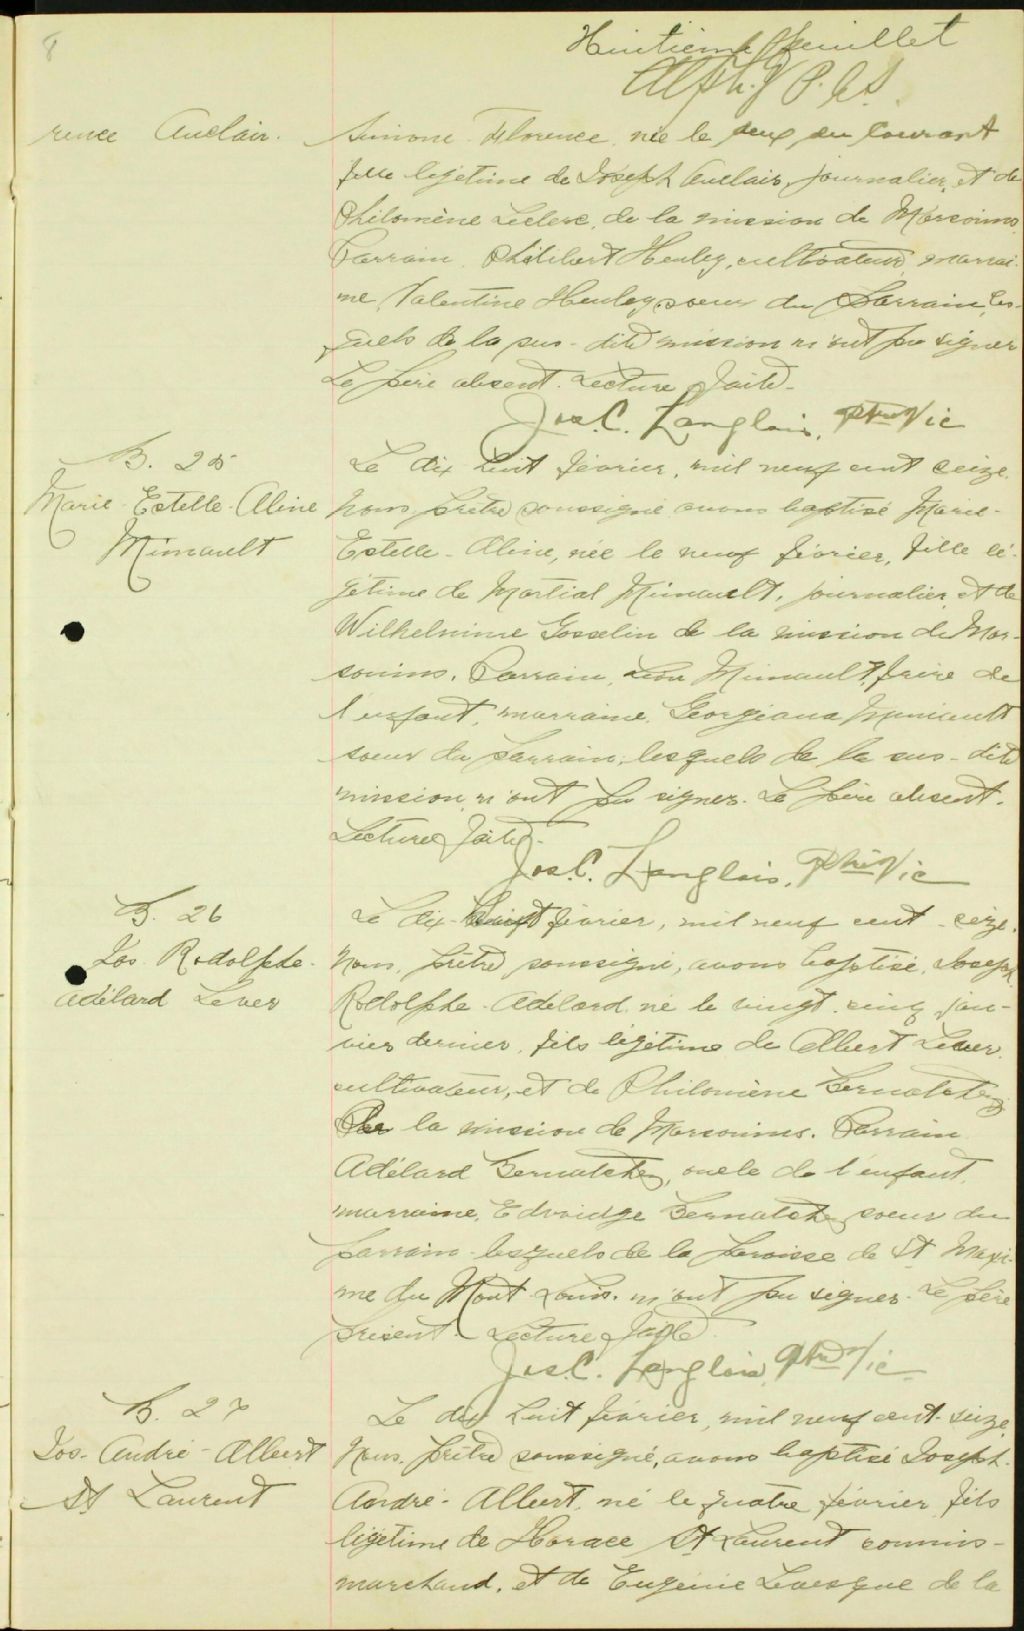 8
Huitième feuillet
Alph. P. C. S.
rence Auclair.
Simone Florence, née le deux du courant
fille légitime de Joseph Auclair, journalier, et de
Philomène Leclerc, de la mission de Marsouins
Parrain, Philibert Henley, cultivateur, marrai-
ne, Valentine Henley, soeur du Parrain, les-
quels de la sus-dite mission n'ont pu signer
Le père absent. Lecture faite.
Jos. C. Langlois, Ptre Vic
B. 25
Marie-Estelle-Aline
Mimault
Le dix huit février, mil neuf cent seize.
Nous, prêtre soussigné avons baptisé Marie-
Estelle-Aline, née le neuf février, fille lé-
gitime de Martial Mimault, journalier, et de
Wilhelmine Gosselin de la mission de Mar-
souins. Parrain, Léon Mimault, frère de
l'enfant, marraine, Georgiana Mimault
soeur du parrain, lesquels de la sus-dite
mission, n'ont pu signer. Le père absent.
Lecture faite.
Jos. C. Langlois, Ptre Vic
B. 26
Jos. Rodolphe-
Adélard Lever
Le dix-huit février, mil neuf cent-seize.
Nous, prêtre soussigné, avons baptisé, Joseph
Rodolphe-Adélard, né le vingt-cinq jan-
vier dernier, fils légitime de Albert Lever
cultivateur, et de Philomène Bernatchez
de la mission de Marsouins. Parrain
Adélard Bernatchez, oncle de l'enfant,
marraine, Edvidge Bernatchez soeur du
parrain lesquels de la paroisse de St Maxi-
me du Mont-Louis, n'ont pu signer. Le père
présent. Lecture faite.
Jos. C. Langlois, Ptre Vic
B. 27
Jos-André-Albert
St Laurent
Le dix huit février, mil neuf cent-seize,
Nous, prêtre soussigné, avons baptisé Joseph-
André-Albert, né le quatre février, fils
légitime de Horace St Laurent commis-
marchand, et de Eugénie Levesque de la